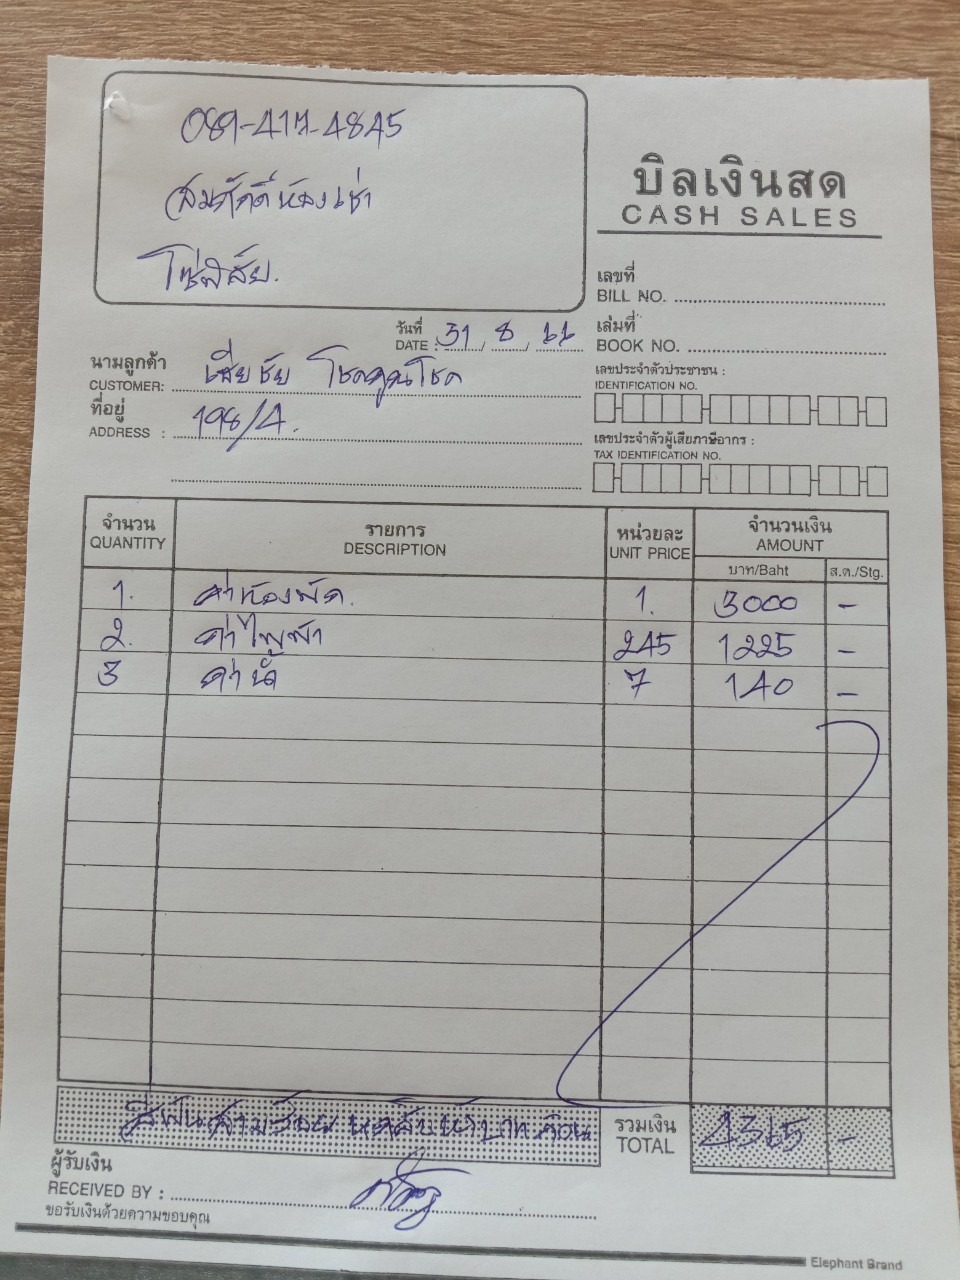 089-417-4845
สมศักดิ์ห้องเช่า
โซ่พิสัย.
บิลเงินสด
CASH SALES
เลขที่
BILL NO.
วันที่
DATE : 31/8/66
เล่มที่
BOOK NO.
นามลูกค้า
CUSTOMER: เสี่ยชัย โชคคูณโชค
เลขประจำตัวประชาชน :
IDENTIFICATION NO.
ที่อยู่
ADDRESS : 198/4.
เลขประจำตัวผู้เสียภาษีอากร :
TAX IDENTIFICATION NO.
จำนวน รายการ หน่วยละ จำนวนเงิน
QUANTITY DESCRIPTION UNIT PRICE AMOUNT
บาท/Baht ส.ต./Stg.
1. ค่าห้องพัก. 1. 3000 -
2. ค่าไฟฟ้า 245 1225 -
3 ค่าน้ำ 7 140 -
สี่พันสามร้อยหกสิบห้าบาทถ้วน
รวมเงิน
TOTAL 4365 -
ผู้รับเงิน
RECEIVED BY :
ขอรับเงินด้วยความขอบคุณ
Elephant Brand